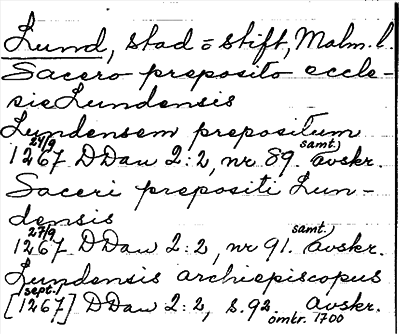 Lund, stad o stift, Malm. l.
Sacero preposito eccle-
sie Lundensis
Lundensem prepositum
24/9 samt.)
1267 DDan 2:2, nr 89. avskr.
Saceri prepositi Lun-
densis
27/9 samt.)
1267 DDan 2:2, nr 91. avskr.
Lundensis archiepiscopus
(sept.)
[1267] DDan 2:2, s. 92. avskr.
omkr. 1700